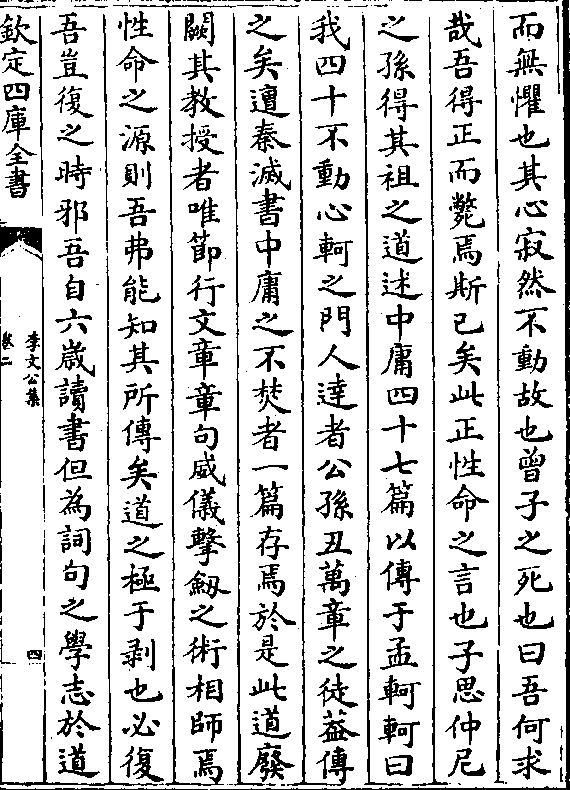 而無懼也其心寂然不動故也曾子之死也曰吾何求
哉吾得正而斃焉斯已矣此正性命之言也子思仲尼
之孫得其祖之道述中庸四十七篇以傳于孟軻軻曰
我四十不動心軻之門人達者公孫丑萬章之徒葢傳
之矣遭秦滅書中庸之不焚者一篇存焉於是此道廢
闕其教授者唯節行文章章句威儀擊劒之術相師焉
性命之源則吾弗能知其所傳矣道之極于剥也必復
吾豈復之時邪吾自六歲讀書但為詞句之學志於道
欽定四庫全書
李文公集
卷二
四